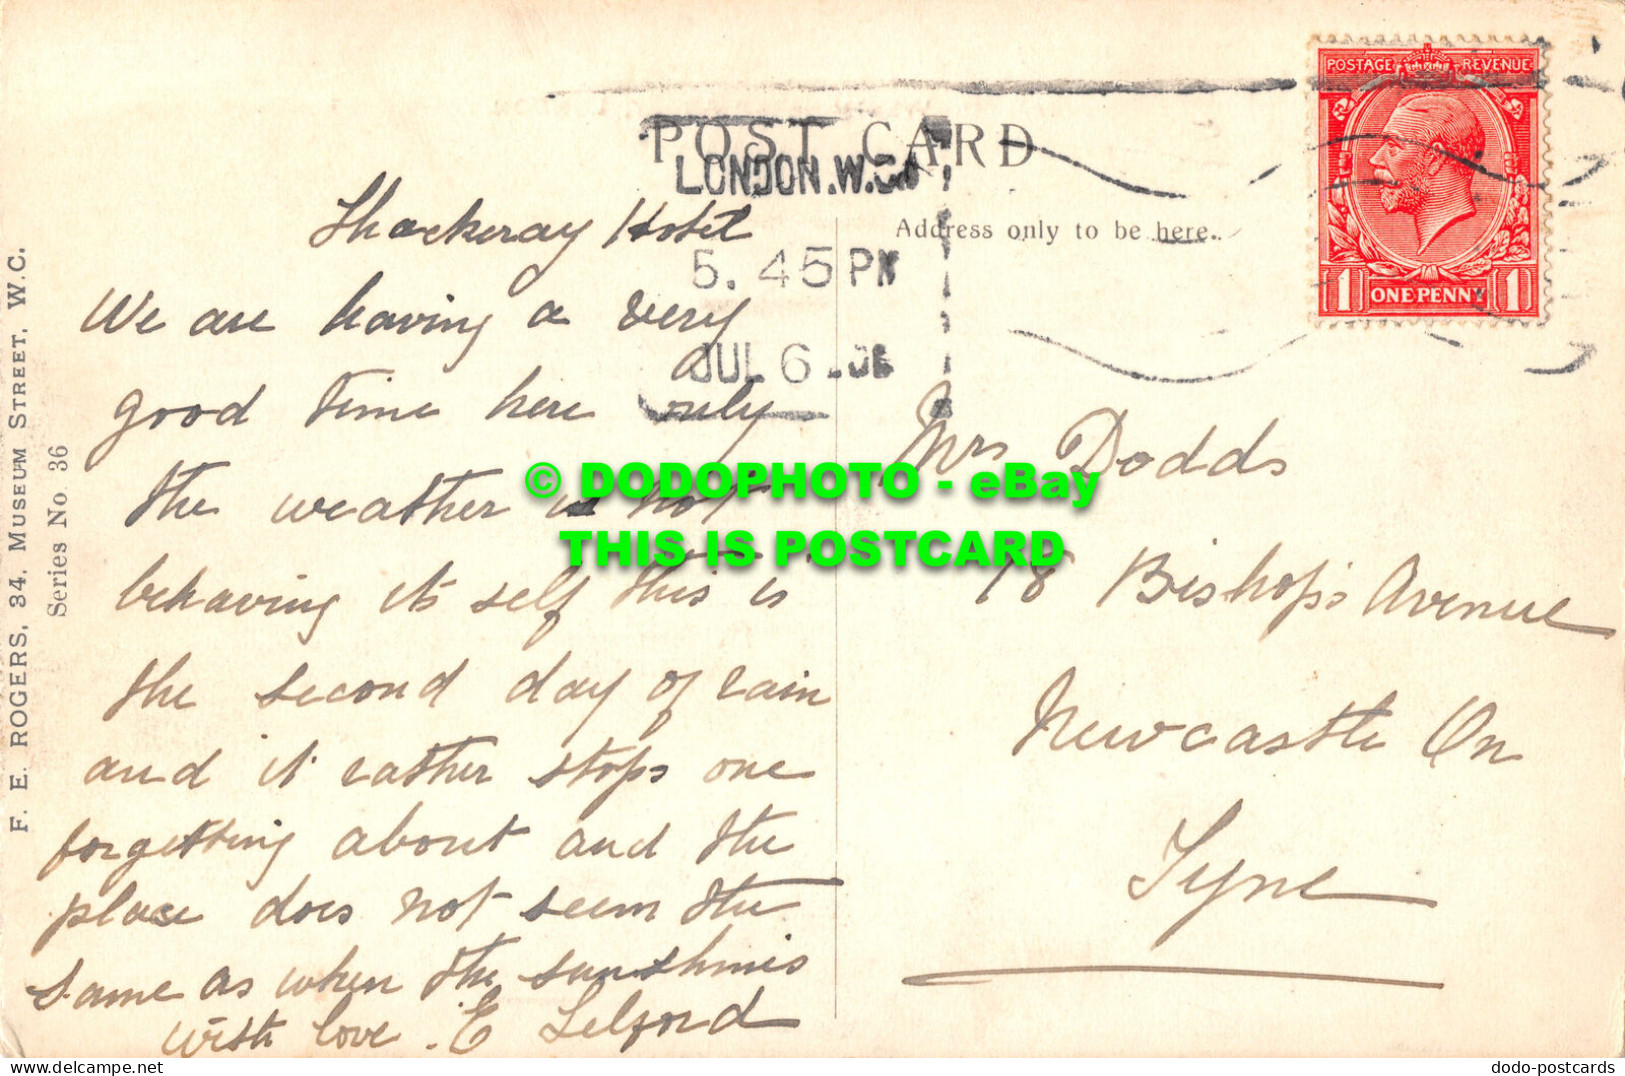 POSTAGE REVENUE
1 ONE PENNY 1
POST CARD
LONDON.W.C.
5.45 PM
JUL 6
Address only to be here.
Thackeray Hotel
We are having a very
good time here only
the weather is not
behaving its self this is
the second day of rain
and it rather stops one
forgetting about and the
place does not seem the
same as when the sunshines
with love. E Telford
Mrs Dodds
78 Bishop's Avenue
Newcastle On
Tyne
F. E. ROGERS, 34, MUSEUM STREET, W.C.
Series No. 36
© DODOPHOTO - eBay
THIS IS POSTCARD
dodo-postcards